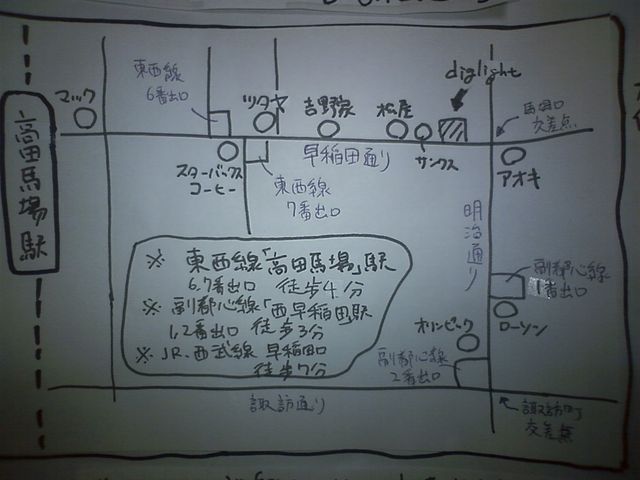 高田馬場駅
マック
東西線
6番出口
ツタヤ
吉野家
松屋
サンクス
diglight
馬場口
交差点
早稲田通り
スターバックス
コーヒー
東西線
7番出口
アオキ
明治通り
※ 東西線「高田馬場」駅
6.7番出口 徒歩4分
※ 副都心線「西早稲田」駅
1,2番出口 徒歩3分
※ JR.西武線 早稲田口
徒歩7分
副都心線
1番出口
ローソン
オリンピック
副都心線
2番出口
諏訪通り
諏訪町
交差点